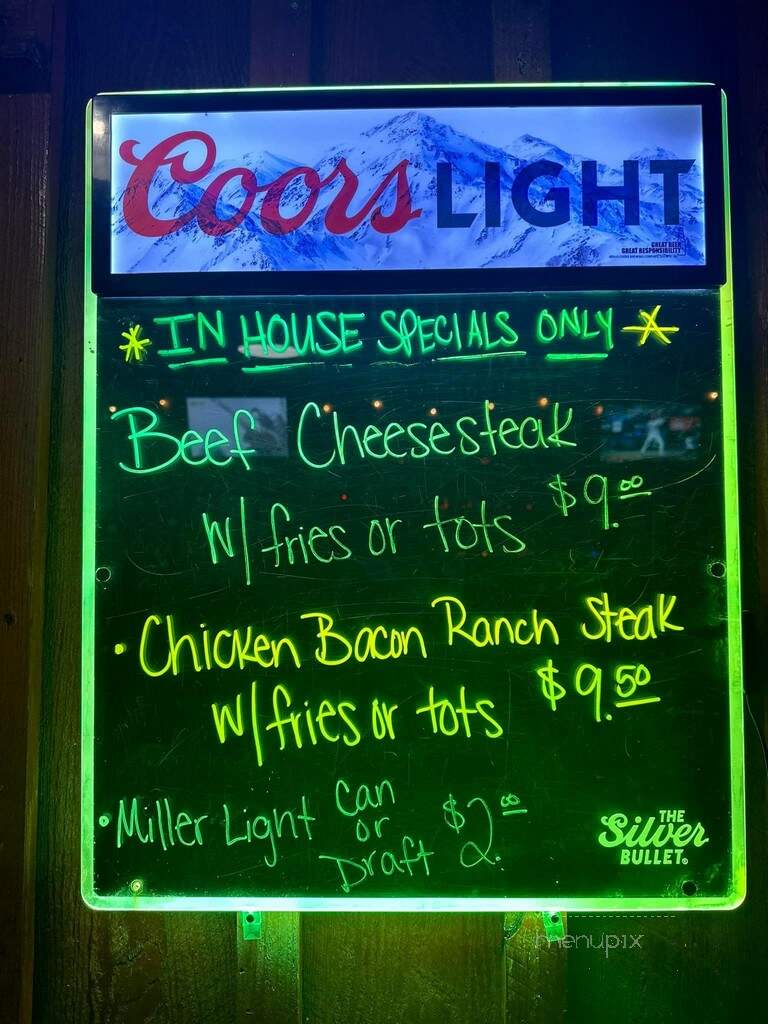 Coors LIGHT
GREAT BEER
GREAT RESPONSIBILITY
* IN HOUSE SPECIALS ONLY *
Beef Cheesesteak
W/ fries or tots $9.00
• Chicken Bacon Ranch Steak
W/ fries or tots $9.50
• Miller Light Can or Draft $2.00
THE
Silver
BULLET
menupix